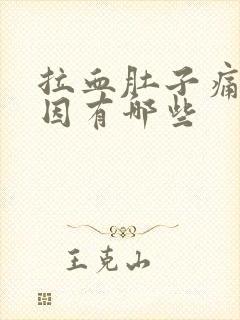 拉血肚子痛
因有哪些
王克山